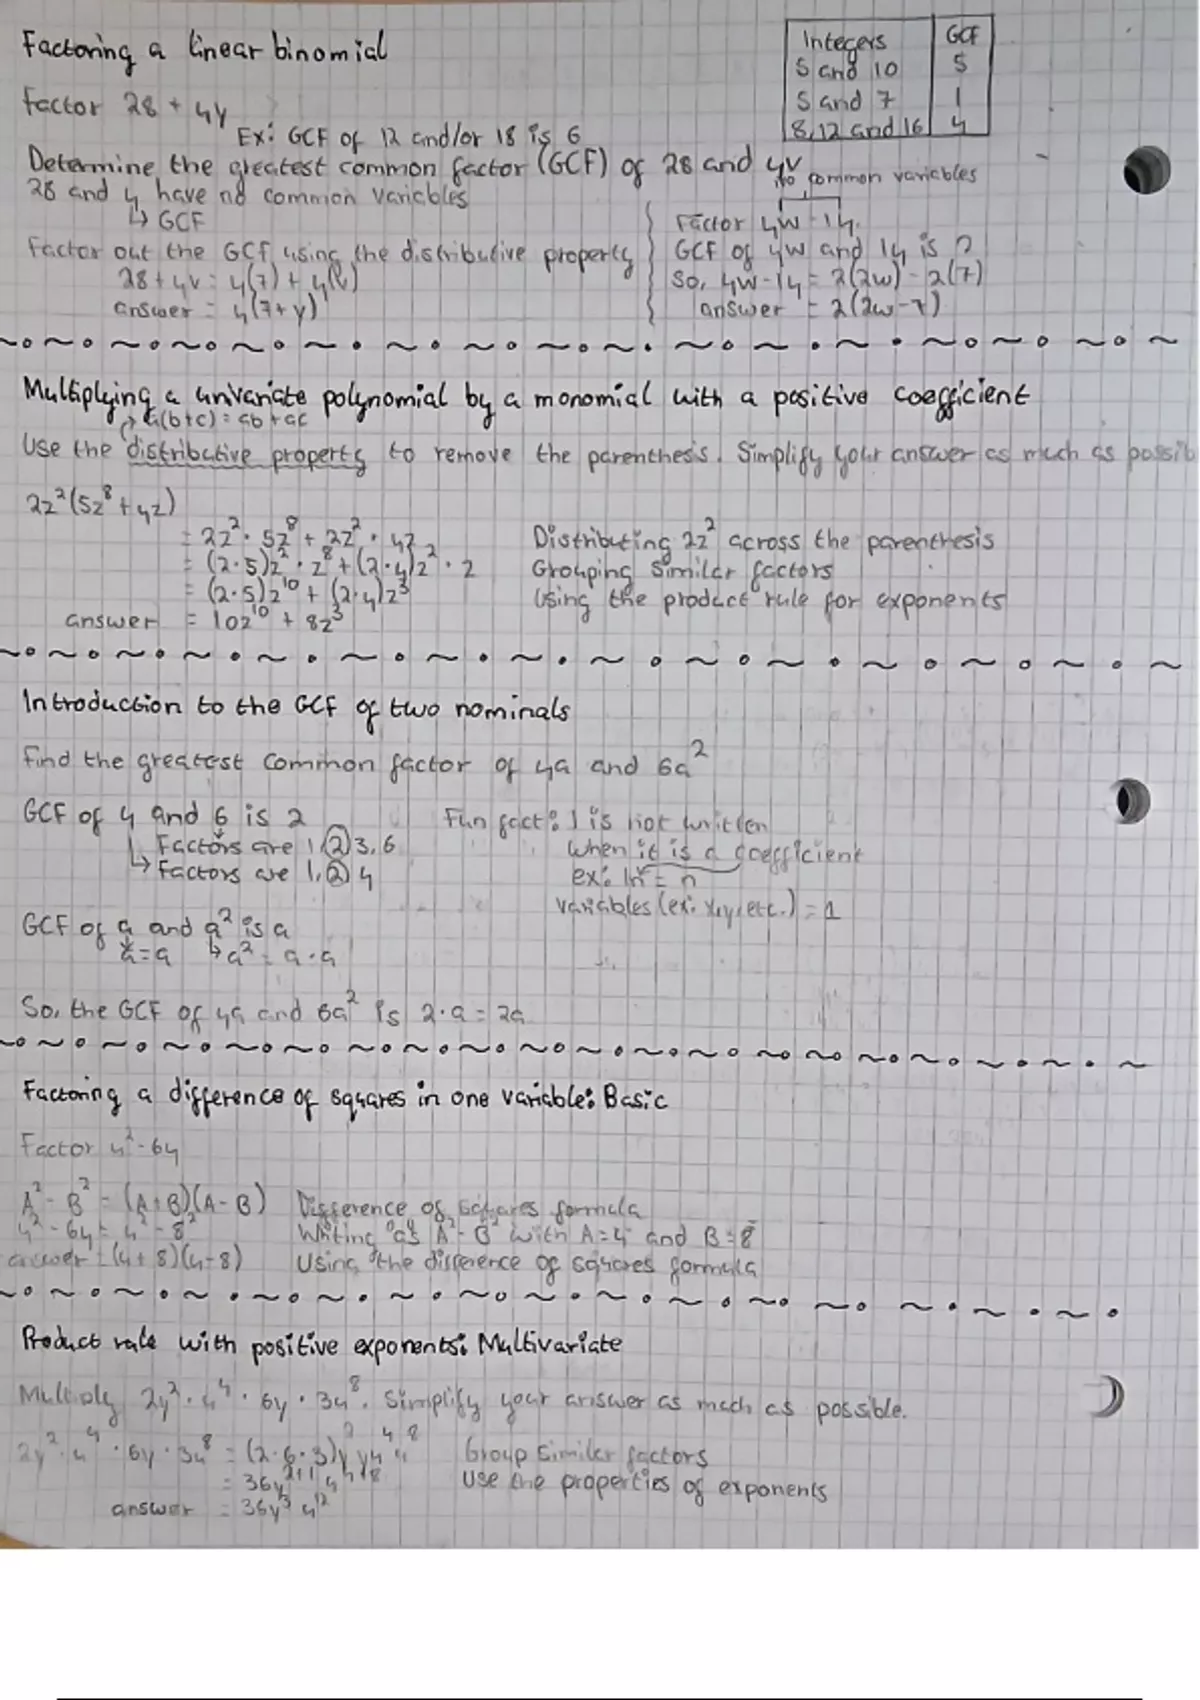 Factoring a linear binomial
Integers GCF
5 and 10 5
5 and 7 1
8, 12 and 16 4
Factor 28 + 4v
Ex: GCF of 12 and/or 18 is 6
Determine the greatest common factor (GCF) of 28 and 4v
no common variables
28 and 4 have no common variables
↳ GCF
Factor out the GCF using the distributive property
28 + 4v = 4(7) + 4(v)
answer = 4(7+v)
Factor 4w - 14.
GCF of 4w and 14 is 2
So, 4w-14 = 2(2w) - 2(7)
answer = 2(2w-7)
Multiplying a univariate polynomial by a monomial with a positive coefficient
a(b+c) = ab + ac
Use the distributive property to remove the parenthesis. Simplify your answer as much as possib
2z²(5z⁸ + 4z)
= 2z² · 5z⁸ + 2z² · 4z Distributing 2z² across the parenthesis
= (2·5)z² · z⁸ + (2·4)z² · z Grouping similar factors
= (2·5)z¹⁰ + (2·4)z³ Using the product rule for exponents
answer = 10z¹⁰ + 8z³
Introduction to the GCF of two nominals
Find the greatest common factor of 4a and 6a²
GCF of 4 and 6 is 2
Factors are 1, 2, 3, 6
↳ Factors are 1, 2, 4
Fun fact: 1 is not written
when it is a coefficient
ex: 1n = n
variables (ex: x, y, etc.) = 1
GCF of a and a² is a
a = a ↳ a² = a · a
So, the GCF of 4a and 6a² is 2 · a = 2a
Factoring a difference of squares in one variable: Basic
Factor u² - 64
A² - B² = (A+B)(A-B) Difference of squares formula
u² - 64 = u² - 8² Writing as A² - B² with A = u and B = 8
answer = (u + 8)(u - 8) Using the difference of squares formula
Product rule with positive exponents: Multivariate
Multiply 2y² · u⁴ · 6y · 3u⁸. Simplify your answer as much as possible.
2y² · u⁴ · 6y · 3u⁸ = (2·6·3)y² y u⁴ u⁸ Group similar factors
= 36y²⁺¹ u⁴⁺⁸ Use the properties of exponents
answer = 36y³ u¹²